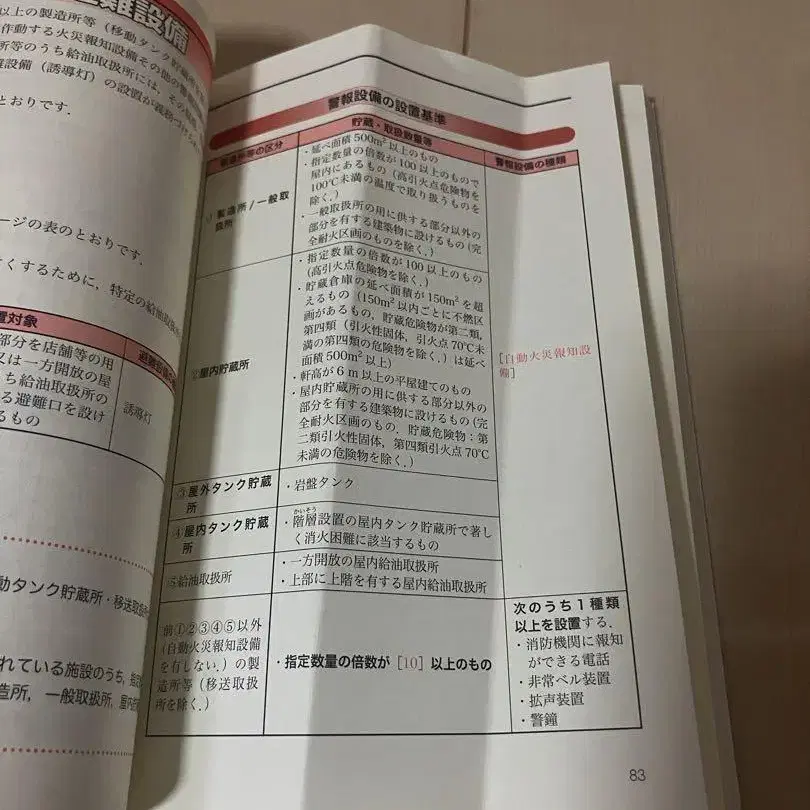 難設備
以上の製造所等（移動タンク貯蔵所
作動する火災報知設備その他の警
所等のうち給油取扱所には，その
設備（誘導灯）の設置が義務づけ
とおりです．
ージの表のとおりです．
くするために，特定の給油取扱
置対象
部分を店舗等の用
又は一方開放の屋
ち給油取扱所の
る避難口を設け
るもの
誘導灯
動タンク貯蔵所・移送取扱
れている施設のうち，指定
造所，一般取扱所，屋内
警報設備の設置基準
製造所等の区分
貯蔵・取扱数量等
警報設備の種類
①製造所/一般取
扱所
・延べ面積500m²以上のもの
・指定数量の倍数が100以上のもので
屋内にあるもの（高引火点危険物を
100℃未満の温度で取り扱うものを
除く．）
・一般取扱所の用に供する部分以外の
部分を有する建築物に設けるもの（完
全耐火区画のものを除く．）
②屋内貯蔵所
・指定数量の倍数が100以上のもの
（高引火点危険物を除く．）
・貯蔵倉庫の延べ面積が150m²を超
えるもの（150m²以内ごとに不燃区
画があるもの，貯蔵危険物が第二類，
第四類（引火性固体，引火点70℃未
満の第四類の危険物を除く．）は延べ
面積500m²以上）
・軒高が6m以上の平屋建てのもの
・屋内貯蔵所の用に供する部分以外の
部分を有する建築物に設けるもの（完
全耐火区画のもの，貯蔵危険物：第
二類引火性固体，第四類引火点70℃
未満の危険物を除く．）
③屋外タンク貯蔵
所
・岩盤タンク
④屋内タンク貯蔵
所
かいそう
・階層設置の屋内タンク貯蔵所で著し
く消火困難に該当するもの
⑤給油取扱所
・一方開放の屋内給油取扱所
・上部に上階を有する屋内給油取扱所
[自動火災報知設
備]
前①②③④⑤以外
（自動火災報知設備
を有しない．）の製
造所等（移送取扱
所を除く．）
・指定数量の倍数が［10］以上のもの
次のうち1種類
以上を設置する．
・消防機関に報知
ができる電話
・非常ベル装置
・拡声装置
・警鐘
83